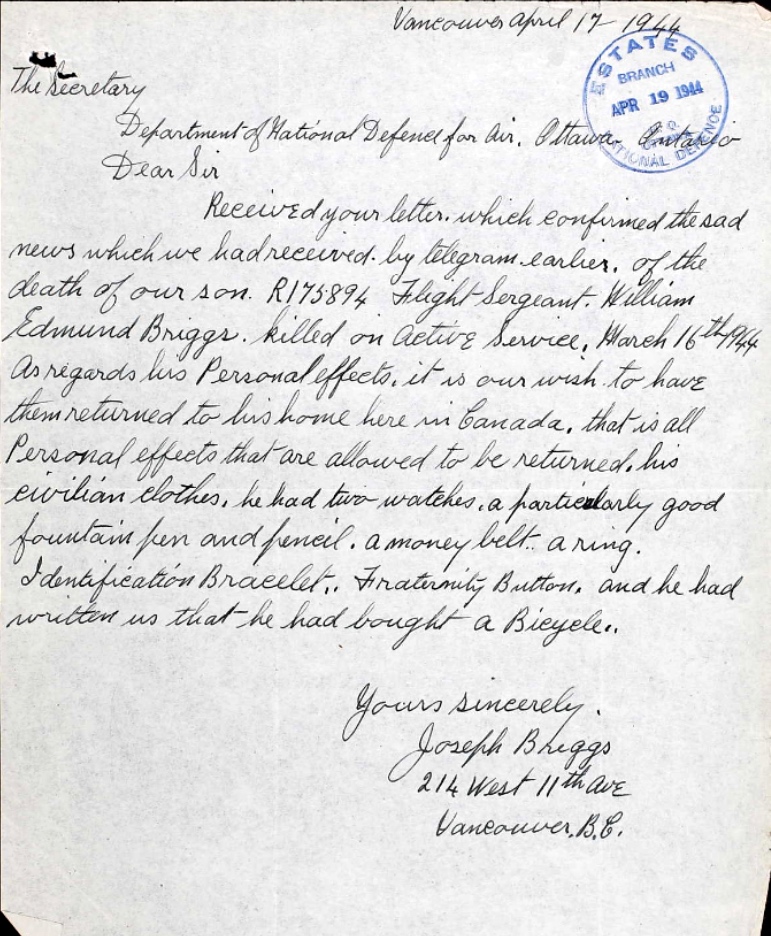 Vancouver April 17 1944
ESTATES
BRANCH
APR 19 1944
NATIONAL DEFENCE
The Secretary
Department of National Defence for Air. Ottawa. Ontario
Dear Sir
Received your letter. which confirmed the sad
news which we had received. by telegram earlier. of the
death of our son. R175894 Flight Sergeant. William
Edmund Briggs. killed on Active Service. March 16th 1944
As regards his Personal effects. it is our wish to have
them returned to his home here in Canada. that is all
Personal effects that are allowed to be returned. his
civilian clothes. he had two watches. a particularly good
fountain pen and pencil. a money belt.. a ring.
Identification Bracelet.. Fraternity Button. and he had
written us that he had bought a Bicycle..
Yours sincerely.
Joseph Briggs
214 West 11th Ave
Vancouver. B.C.